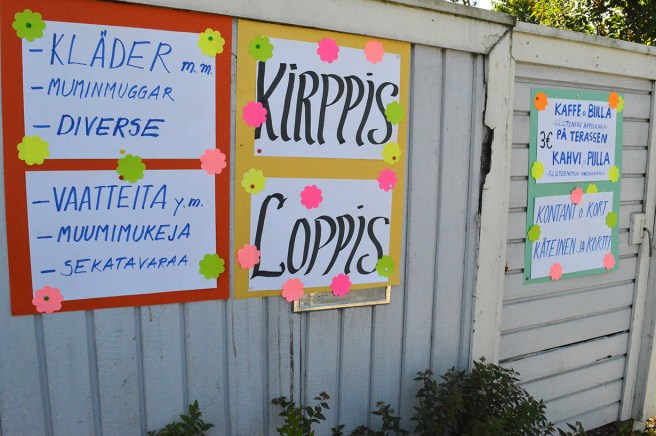 - KLÄDER m.m.
- MUMINMUGGAR
- DIVERSE
- VAATTEITA y.m.
- MUUMIMUKEJA
- SEKATAVARAA
KIRPPIS
LOPPIS
KAFFE o. BULLA
PÅ TERASSEN
3€
KAHVI & PULLA
KONTANT o. KORT
KÄTEINEN JA KORTTI